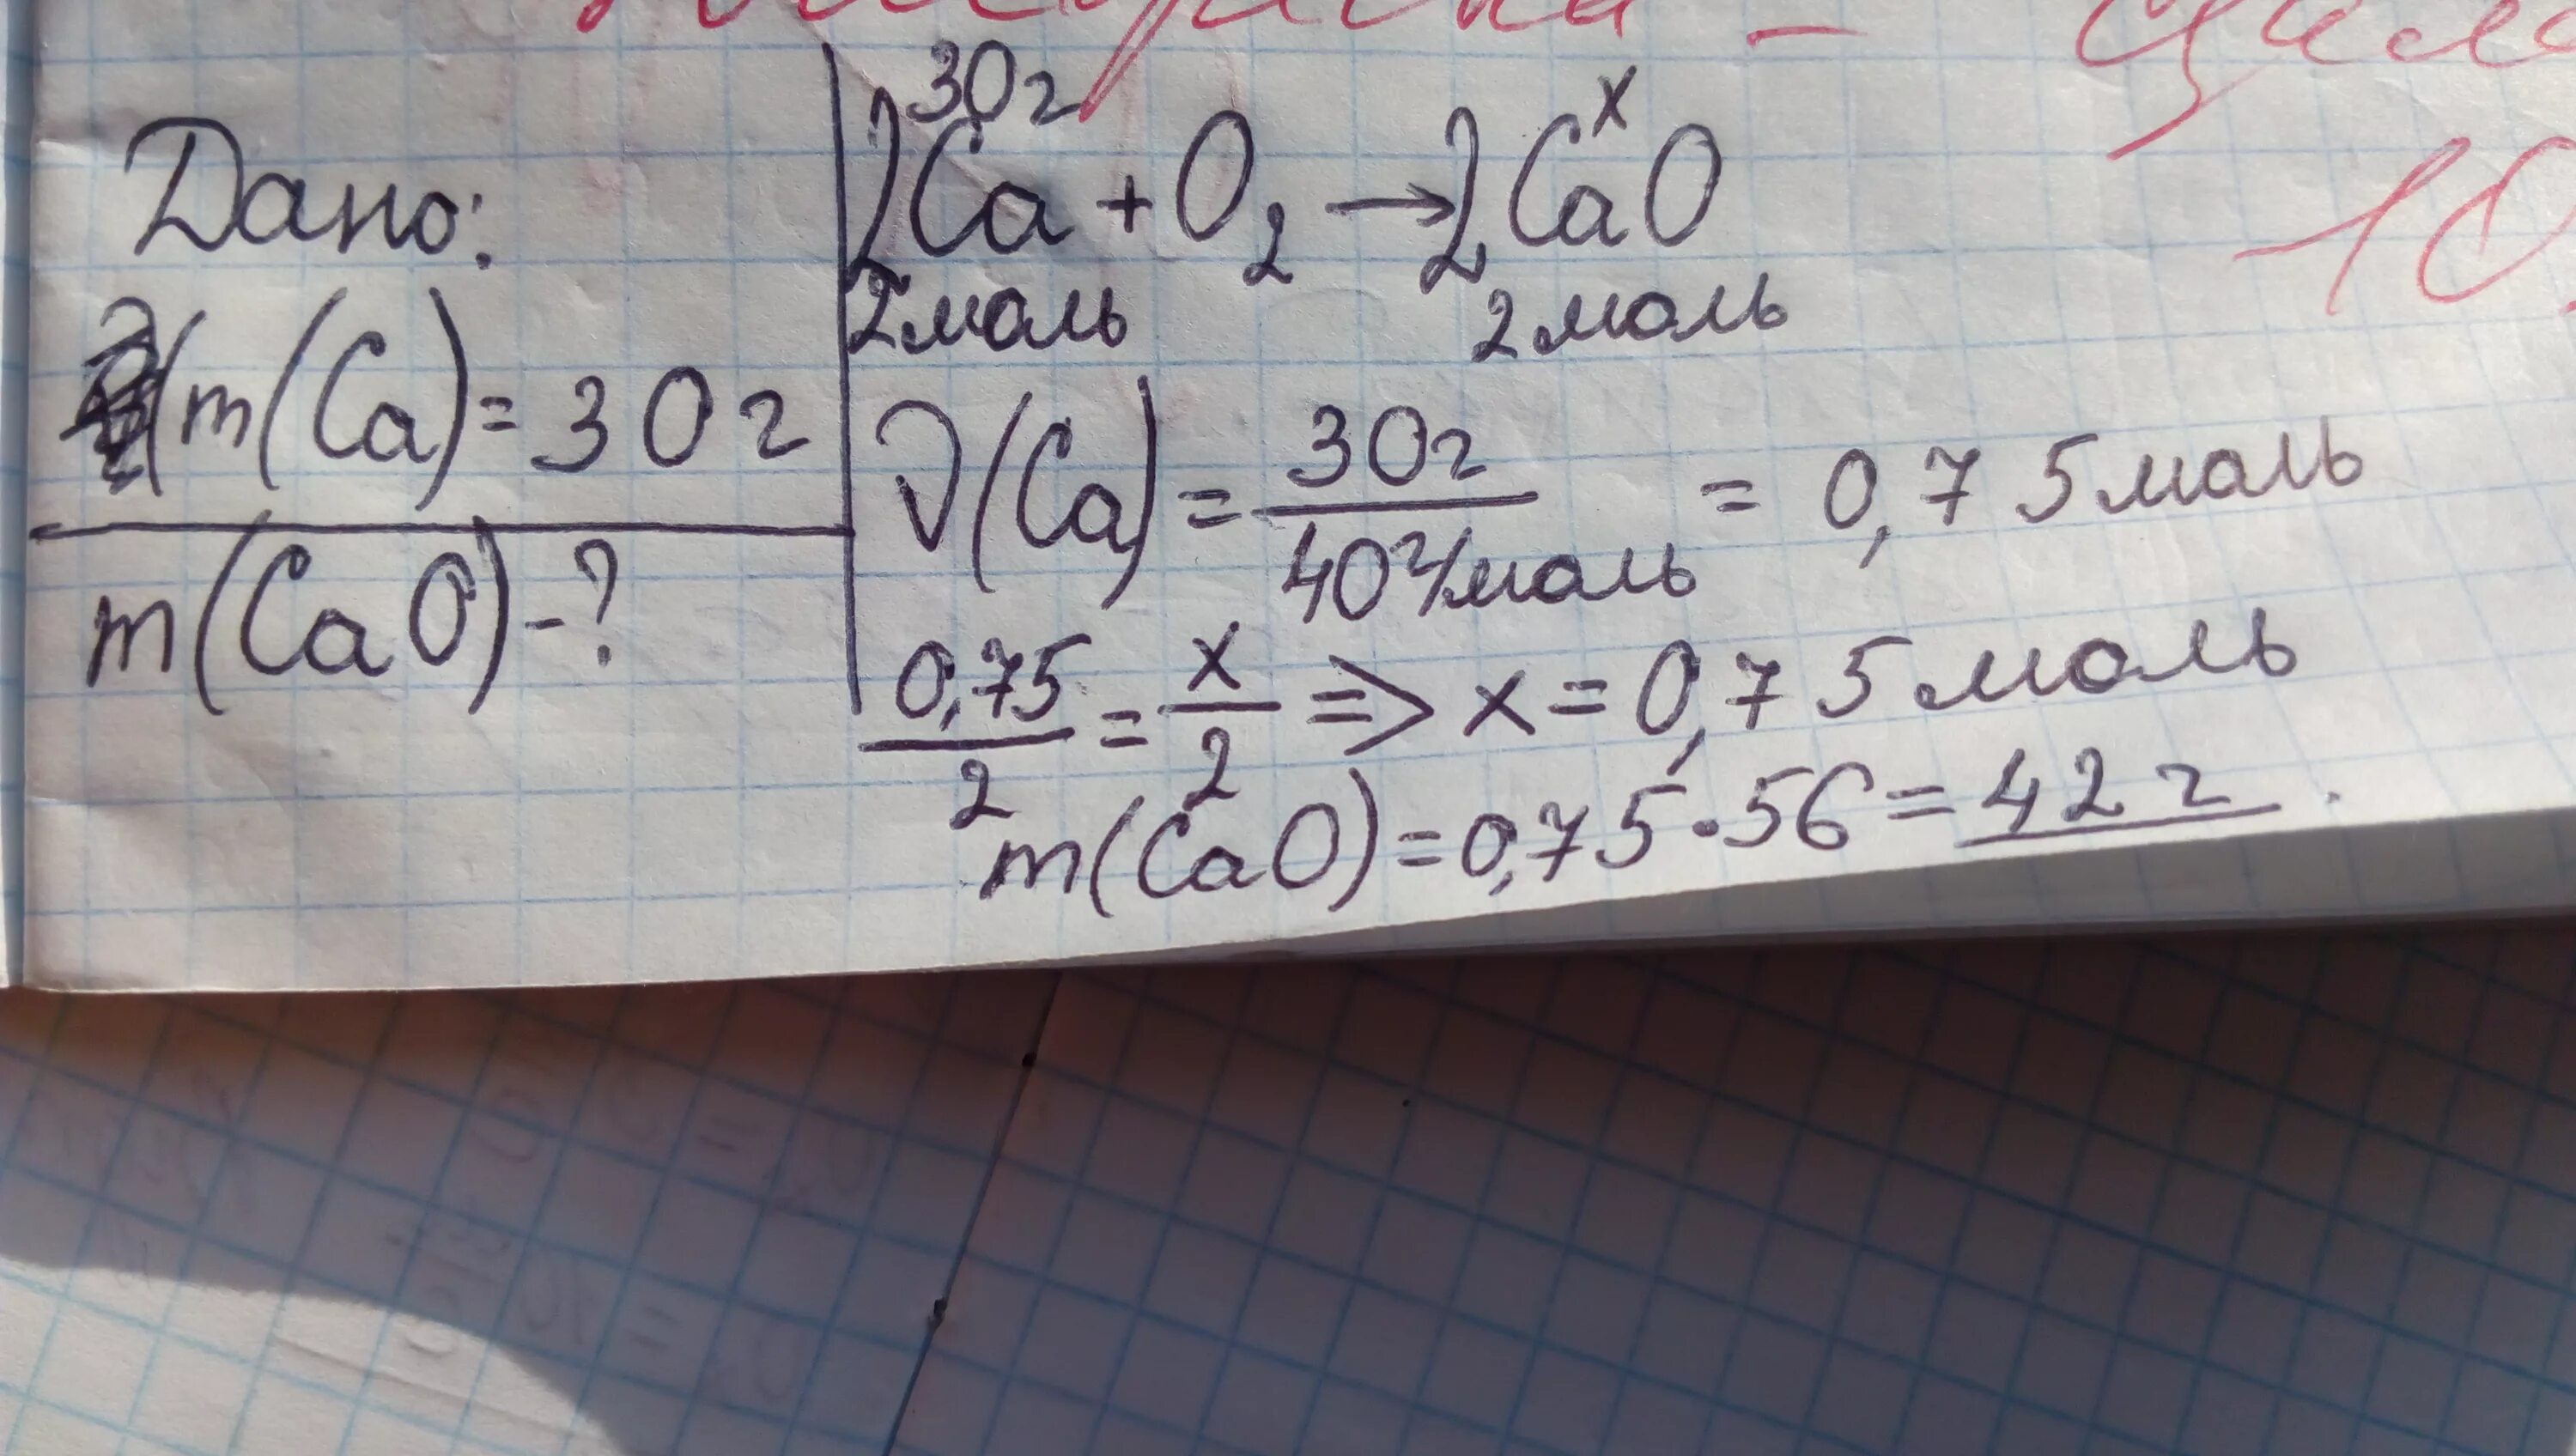 Дано:
m(Ca)=30г
m(CaO)-?
30г x
2Ca+O₂→2CaO
2моль 2моль
ν(Ca)=30г/40г/моль = 0,75моль
0,75/2=x/2⇒x=0,75моль
m(CaO)=0,75·56=42г.
10